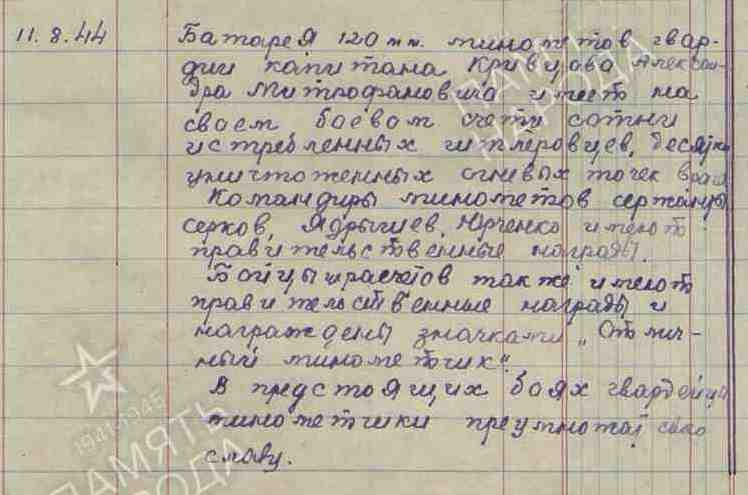 11.8.44 Батарея 120 мм. минометов гвар-
дии капитана Кривцова Алексан-
дра Митрофановича имеет на
своем боевом счету сотни
истребленных гитлеровцев, десятки
уничтоженных огневых точек врага
Командиры минометов сержанты
серков, Ядрышев, Юрченко имеют
правительственные награды.
Бойцы расчетов также имеют
правительственные награды и
награждены значками „Отлич-
ный минометчик".
В предстоящих боях гвардейцы
минометчики преумножат свою
славу.
ПАМЯТЬ
НАРОДА
1941-1945
ПАМЯТЬ
НАРОДА